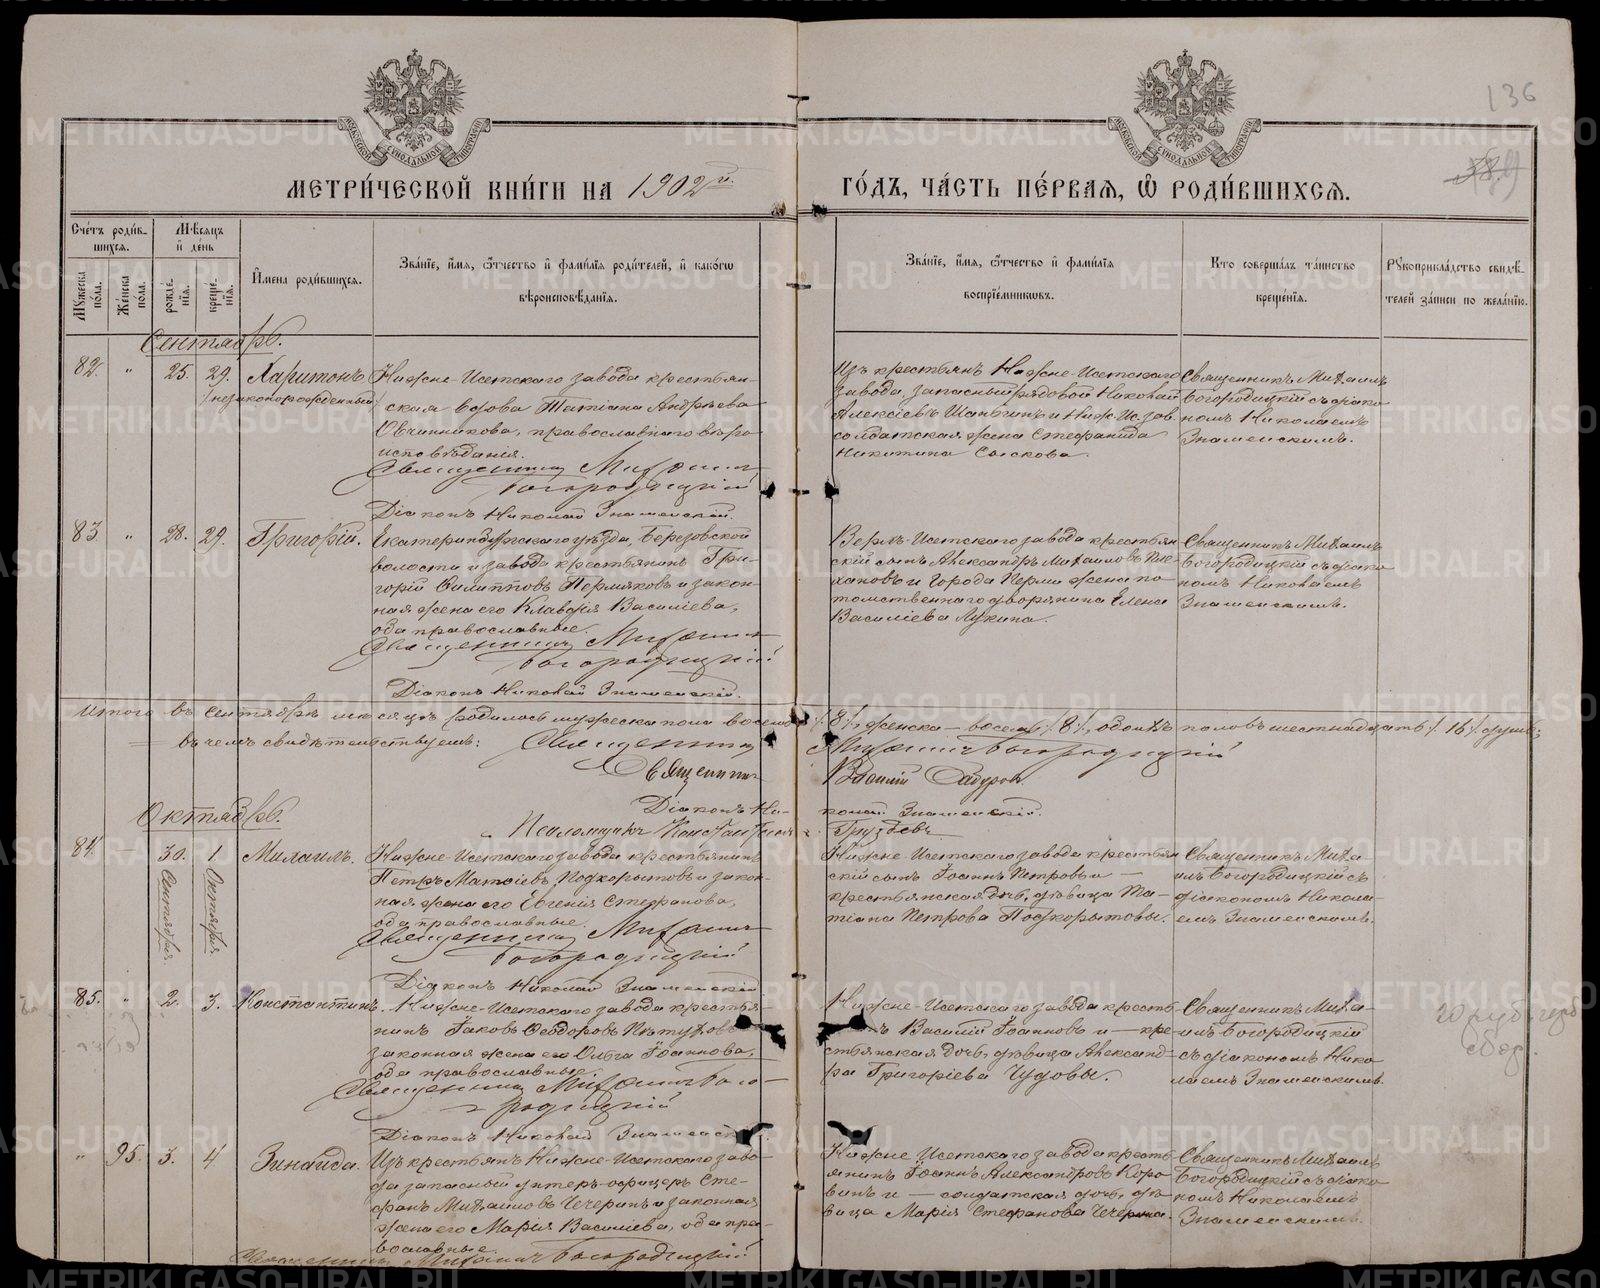 METRIKI.GASO-URAL.RU
136
МЕТРИ́ЧЕСКОЙ КНИ́ГИ НА 1902 й.
ГО́ДЪ, ЧА́СТЬ ПЕ́РВАЯ, Ѡ҆ РОДИ́ВШИХСЯ.
Сче́тъ роди́в-
шихся.
Мѣ́сяцъ
и҆ де́нь
Му́жеска по́ла.
Же́нска по́ла.
рожде́-
нїѧ.
креще́-
нїѧ.
И҆мена роди́вшихся.
Зва́нїе, и҆́мя, ѻ҆́тчество и҆ фами́лїя роди́телей, и҆ како́гѡ
вѣроисповѣ́данїя.
Зва́нїе, и҆́мя, ѻ҆́тчество и҆ фами́лїя
воспрїе́мниковъ.
Кто̀ соверша́лъ та́инство
креще́нїя.
Рꙋкоприкла́дство свидѣ́-
телей за́писи по жела́нїю.
Сентябрь.
82. " 25. 29. Харитонъ
(незаконорожденный)
Нижне-Исетскаго завода крестьян-
ская вдова Татіана Андрѣева
Овчинникова, православнаго вѣро-
исповѣданія.
Священникъ Михаилъ
Богородицкій
Діаконъ Николай Знаменскій.
Изъ крестьянъ Нижне-Исетскаго
завода, запасный рядовой Николай
Алексіевъ Шаньгинъ и Ниж-Ис. зав.
солдатская жена Стефанида
Никитина Сыскова.
Священникъ Михаилъ
Богородицкій съ діако-
номъ Николаемъ
Знаменскимъ.
83 " 28. 29. Григорій.
Екатеринбургскаго уѣзда, Березовской
волости и завода крестьянинъ Гри-
горій Филипповъ Пермяковъ и закон-
ная жена его Клавдія Василіева,
оба православные.
Священникъ Михаилъ
Богородицкій
Діаконъ Николай Знаменскій.
Верхъ-Исетскаго завода крестьян-
скій сынъ Александръ Михаиловъ Пле-
хановъ и города Перми жена по-
томственнаго дворянина Елена
Василіева Лукина.
Священникъ Михаилъ
Богородицкій съ діако-
номъ Николаемъ
Знаменскимъ.
Итого въ сентябрѣ мѣсяцѣ родилось мужеска пола восемь /8/, женска — восемь /8/, обоихъ половъ шестнадцать /16/ душъ;
въ чемъ свидѣтельствуемъ: Священникъ Михаилъ Богородицкій
Священникъ Василій
Діаконъ Николай Знаменскій.
Псаломщикъ Константинъ Груздевъ
Октябрь.
84. — 30. Сентября. 1. Октября. Михаилъ.
Нижне-Исетскаго завода крестьянинъ
Петръ Матѳіевъ Подкорытовъ и закон-
ная жена его Евгенія Стефанова,
оба православные.
Священникъ Михаилъ
Богородицкій
Діаконъ Николай Знаменскій
Нижне-Исетскаго завода крестьян-
скій сынъ Іоаннъ Петровъ и —
крестьянская дочь, дѣвица Та-
тіана Петрова Подкорытовы.
Священникъ Миха-
илъ Богородицкій съ
діакономъ Никола-
емъ Знаменскимъ.
85. " 2. 3. Константинъ.
Нижне-Исетскаго завода крестья-
нинъ Іаковъ Ѳеодоровъ Пѣтуховъ
законная жена его Ольга Іоаннова,
оба православные.
Священникъ Михаилъ Бого-
родицкій
Діаконъ Николай Знаменскій.
Нижне-Исетскаго завода кресть
Василій Іоанновъ и — кре-
стьянская дочь, дѣвица Александ-
ра Григоріева Чудовы.
Священникъ Миха-
илъ Богородицкій
съ діакономъ Нико-
лаемъ Знаменскимъ.
" 95. 3. 4 Зинаида.
Изъ крестьянъ Нижне-Исетскаго заво-
да запасный унтеръ-офицеръ Сте-
фанъ Михаиловъ Чечеринъ и законная
жена его Марія Василіева, оба пра-
вославные.
Священникъ Михаилъ Богородицкій
Нижне Исетскаго завода кресть-
янинъ Іоаннъ Александровъ Коро-
винъ и — солдатская дочь, дѣ-
вица Марія Стефанова Чечерина.
Священникъ Михаилъ
Богородицкій съ діако-
номъ Николаемъ
Знаменскимъ.